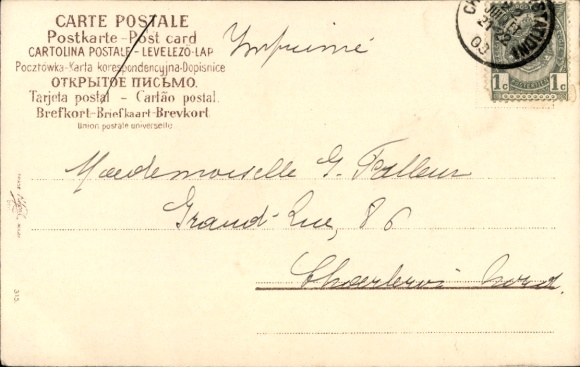 CARTE POSTALE
Postkarte - Post card
CARTOLINA POSTALE - LEVELEZŐ-LAP
Pocztówka-Karta korespondencyjna-Dopisnice
ОТКРЫТОЕ ПИСЬМО.
Tarjeta postal - Cartão postal.
Brefkort-Briefkaart-Brevkort.
Union postale universelle
Imprimé
1c 1c
03
Mademoiselle G. Falleur
Grand-Rue, 86
Charleroi Nord.
313